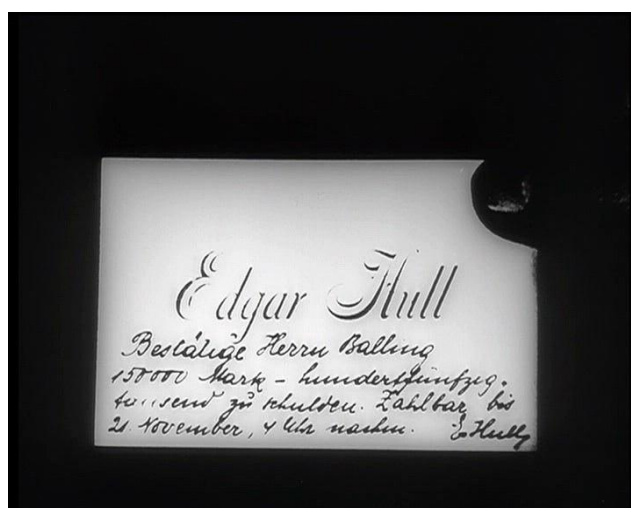 Edgar Hull
Bestätige Herrn Balling
150000 Mark - hundertfünfzig-
tausend zu schulden. Zahlbar bis
21. November, 4 Uhr nachm. E Hull